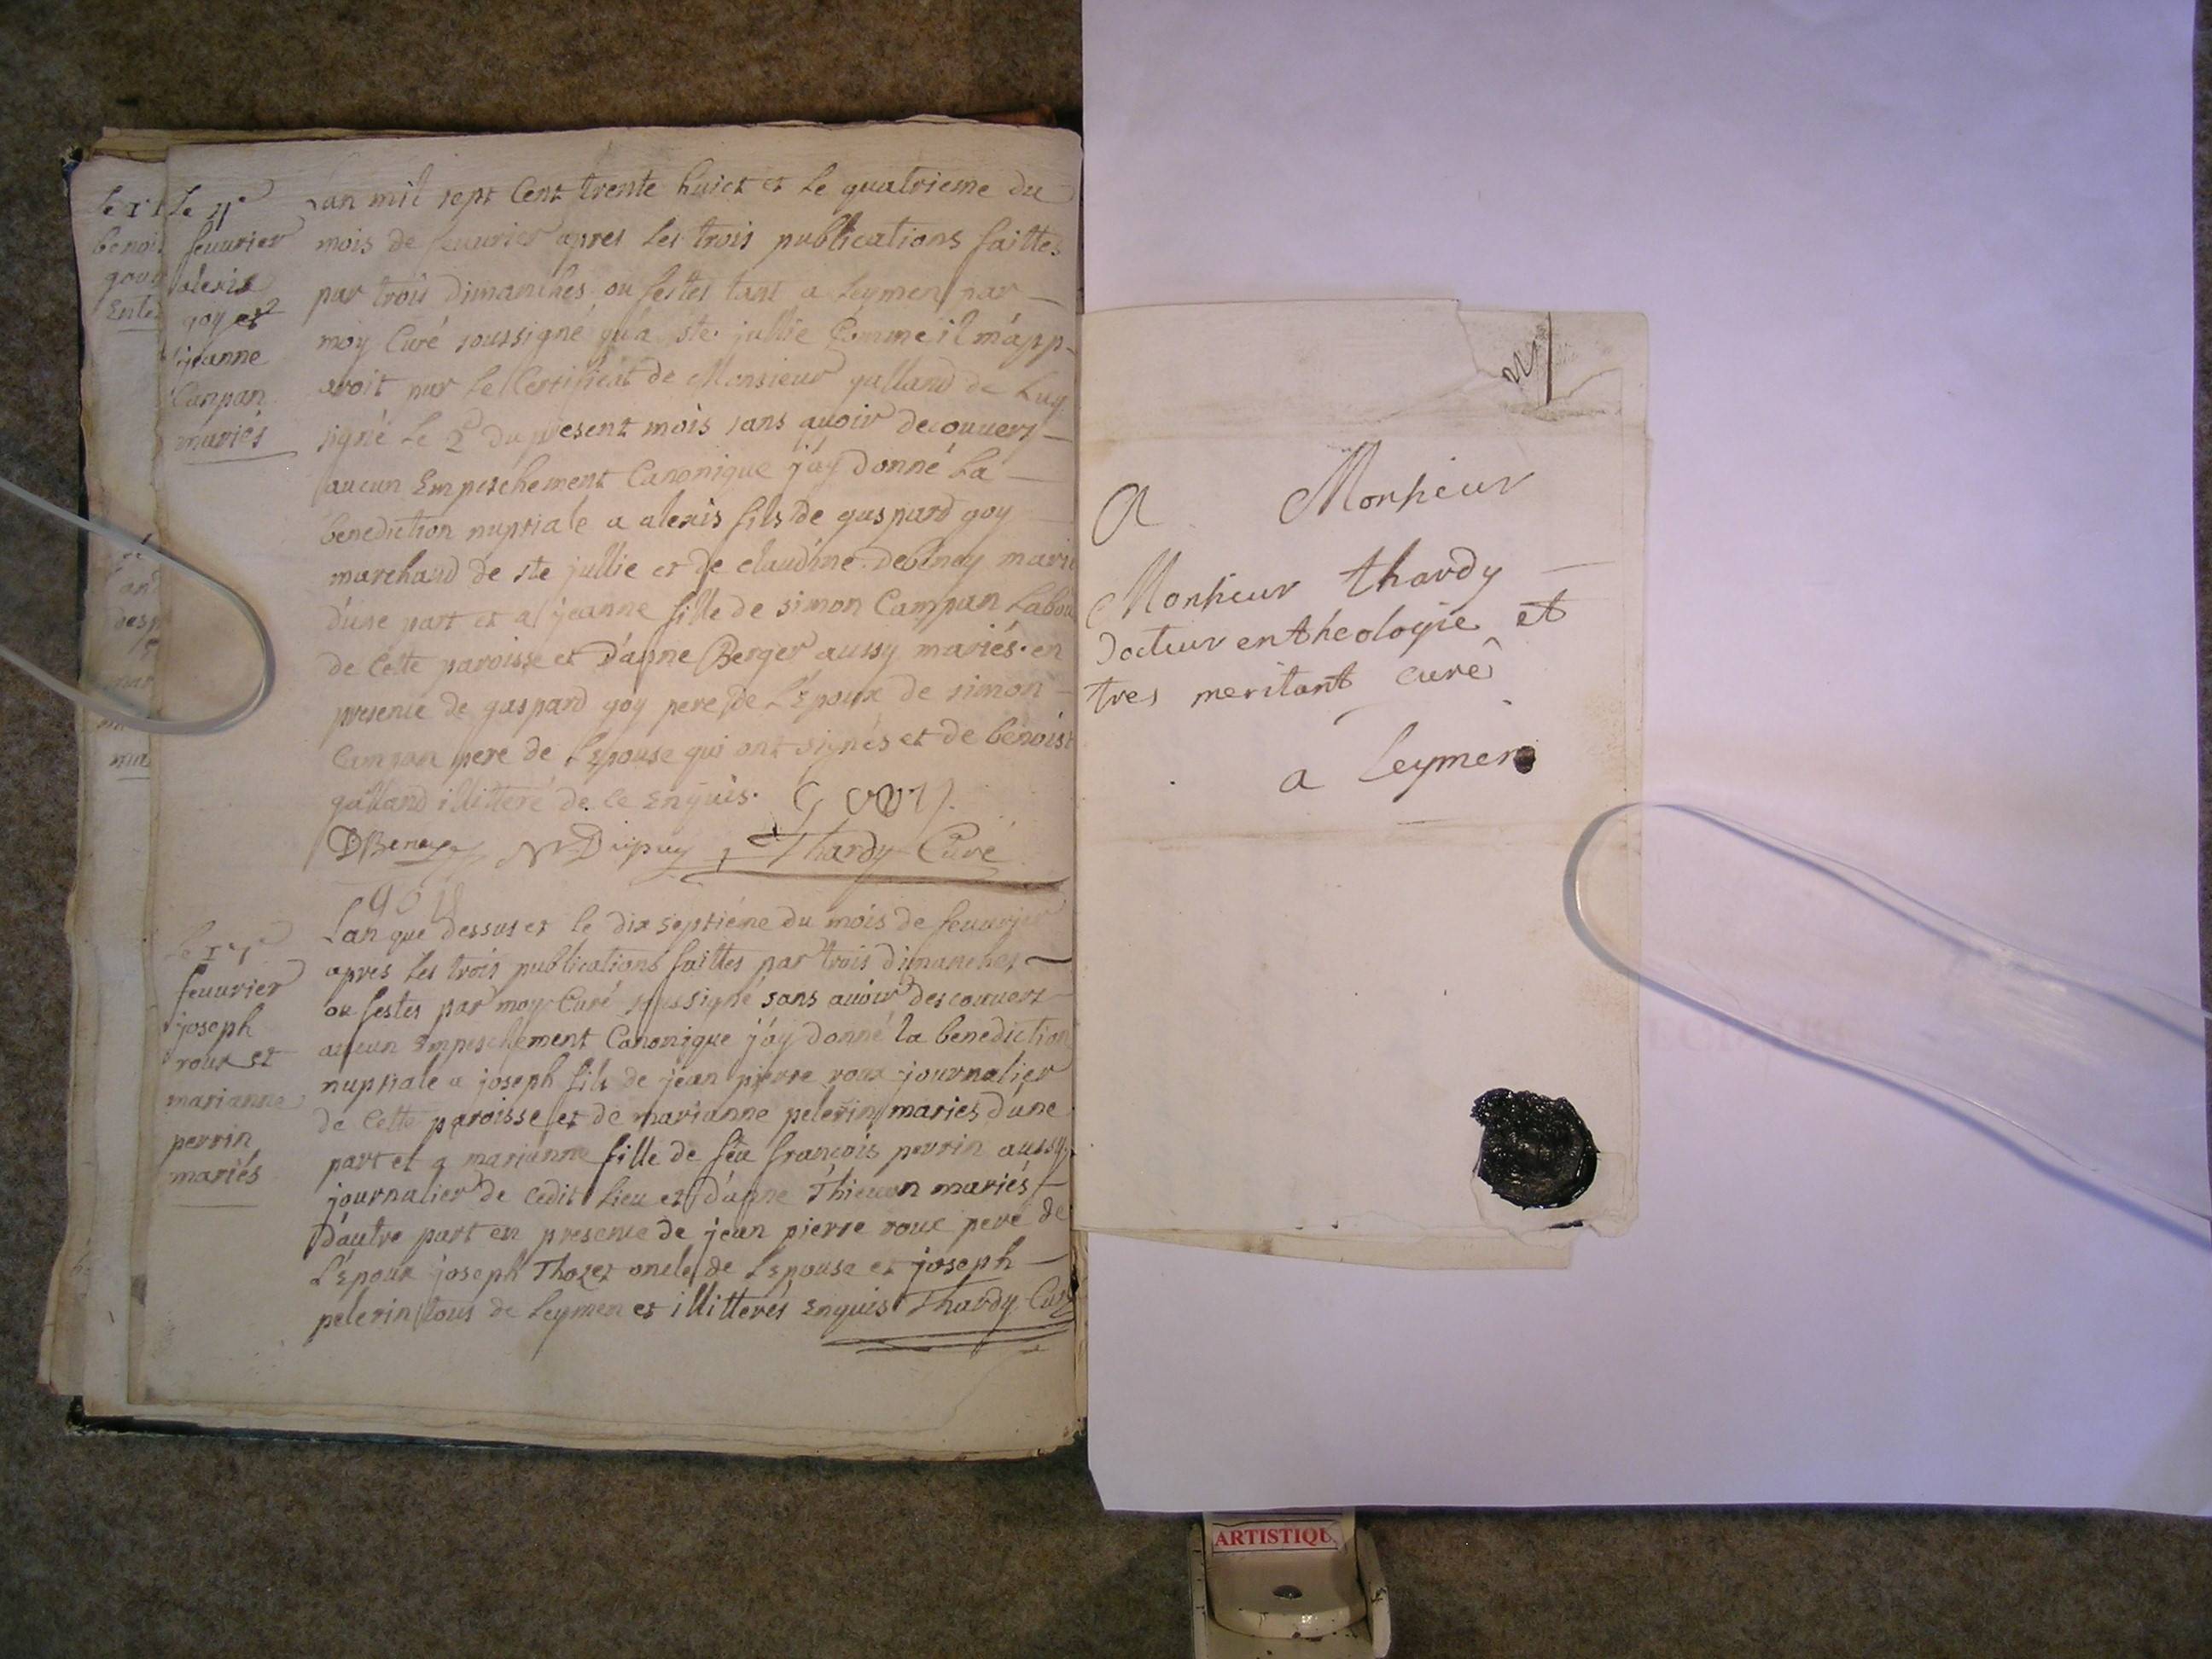 le 4e
feuurier
alexis
goy et
jeanne
Campan
mariés
Lan mil sept Cent trente huict et le quatrieme du
mois de feuurier apres les trois publications faittes
par trois dimanches ou festes tant a Leymen par
moy Curé soussigné qu'a ste jullie Comme il m'app-
aroit par le Certificat de Monsieur galland de
signé le 2e du present mois sans auoir decouuert
aucun Empeschement Canonique j'ay donné La
benediction nuptiale a alexis fils de gaspard goy
marchand de ste jullie et de claudine mari
d'une part et a jeanne fille de simon Campan Labou
de Cette paroisse et d'anne Berger aussy mariés en
presence de gaspard goy pere de L'Epoux de simon
Campan pere de L'Epouse qui ont signés et de benoist
galland illitteré de ce Enquis. Goy
Dupuy Thardy Curé
goy
le 17e
feuurier
joseph
roux et
marianne
perrin
mariés
Lan que dessus et le dix septiéme du mois de feuurier
apres les trois publications faittes par trois dimanches
ou festes par moy Curé soussigné sans auoir descouuert
aucun Empeschement Canonique j'ay donné la benediction
nuptiale a joseph fils de jean pierre roux journalier
de Cette paroisse et de marianne pelerin mariés d'une
part et a marianne fille de feu françois perrin aussy
journalier de cedit Lieu et d'anne Thieuon mariés
d'autre part en presence de jean pierre roux pere de
L'Epoux joseph Thozet oncle de L'Epouse et joseph
pelerin tous de Leymen et illitterés Enquis Thardy Curé
A Monsieur
Monsieur thardy
docteur en théologie et
tres meritant curé
a Leymen
ARTISTIQU